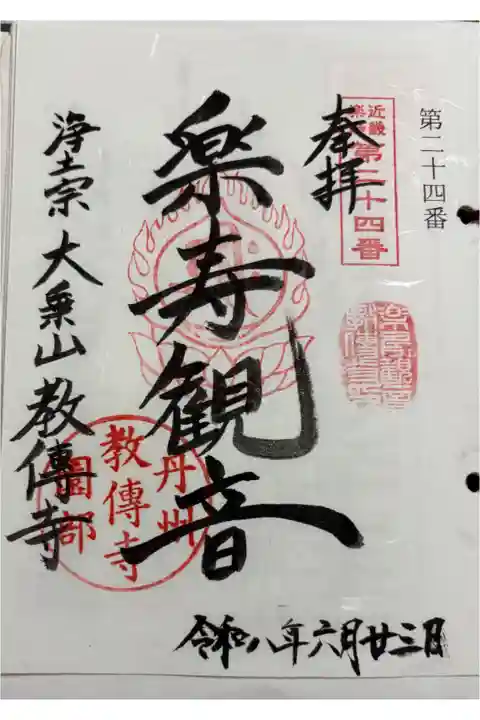 第二十四番
近畿
楽寿
第二十四番
奉拝
楽寿観音
浄土宗 大乗山 教傳寺
丹州
教傳寺
園部
令和八年六月廿三日